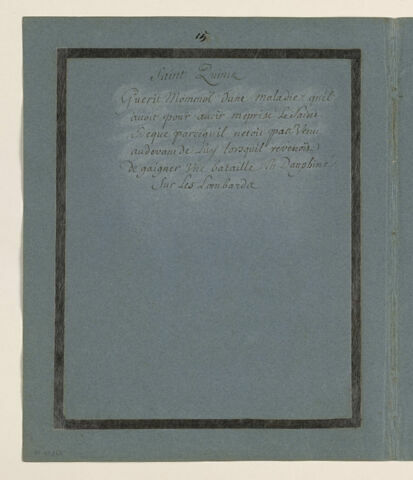 15
Saint Quiniz
Guerit Mommol dune maladie quil
avoit pour avoir meprisé le Saint
Eveque parcequil netoit pas Venu
audevant de Luy lorsquil revenoit
de gaigner Une bataille En Dauphiné
Sur Les Lombards